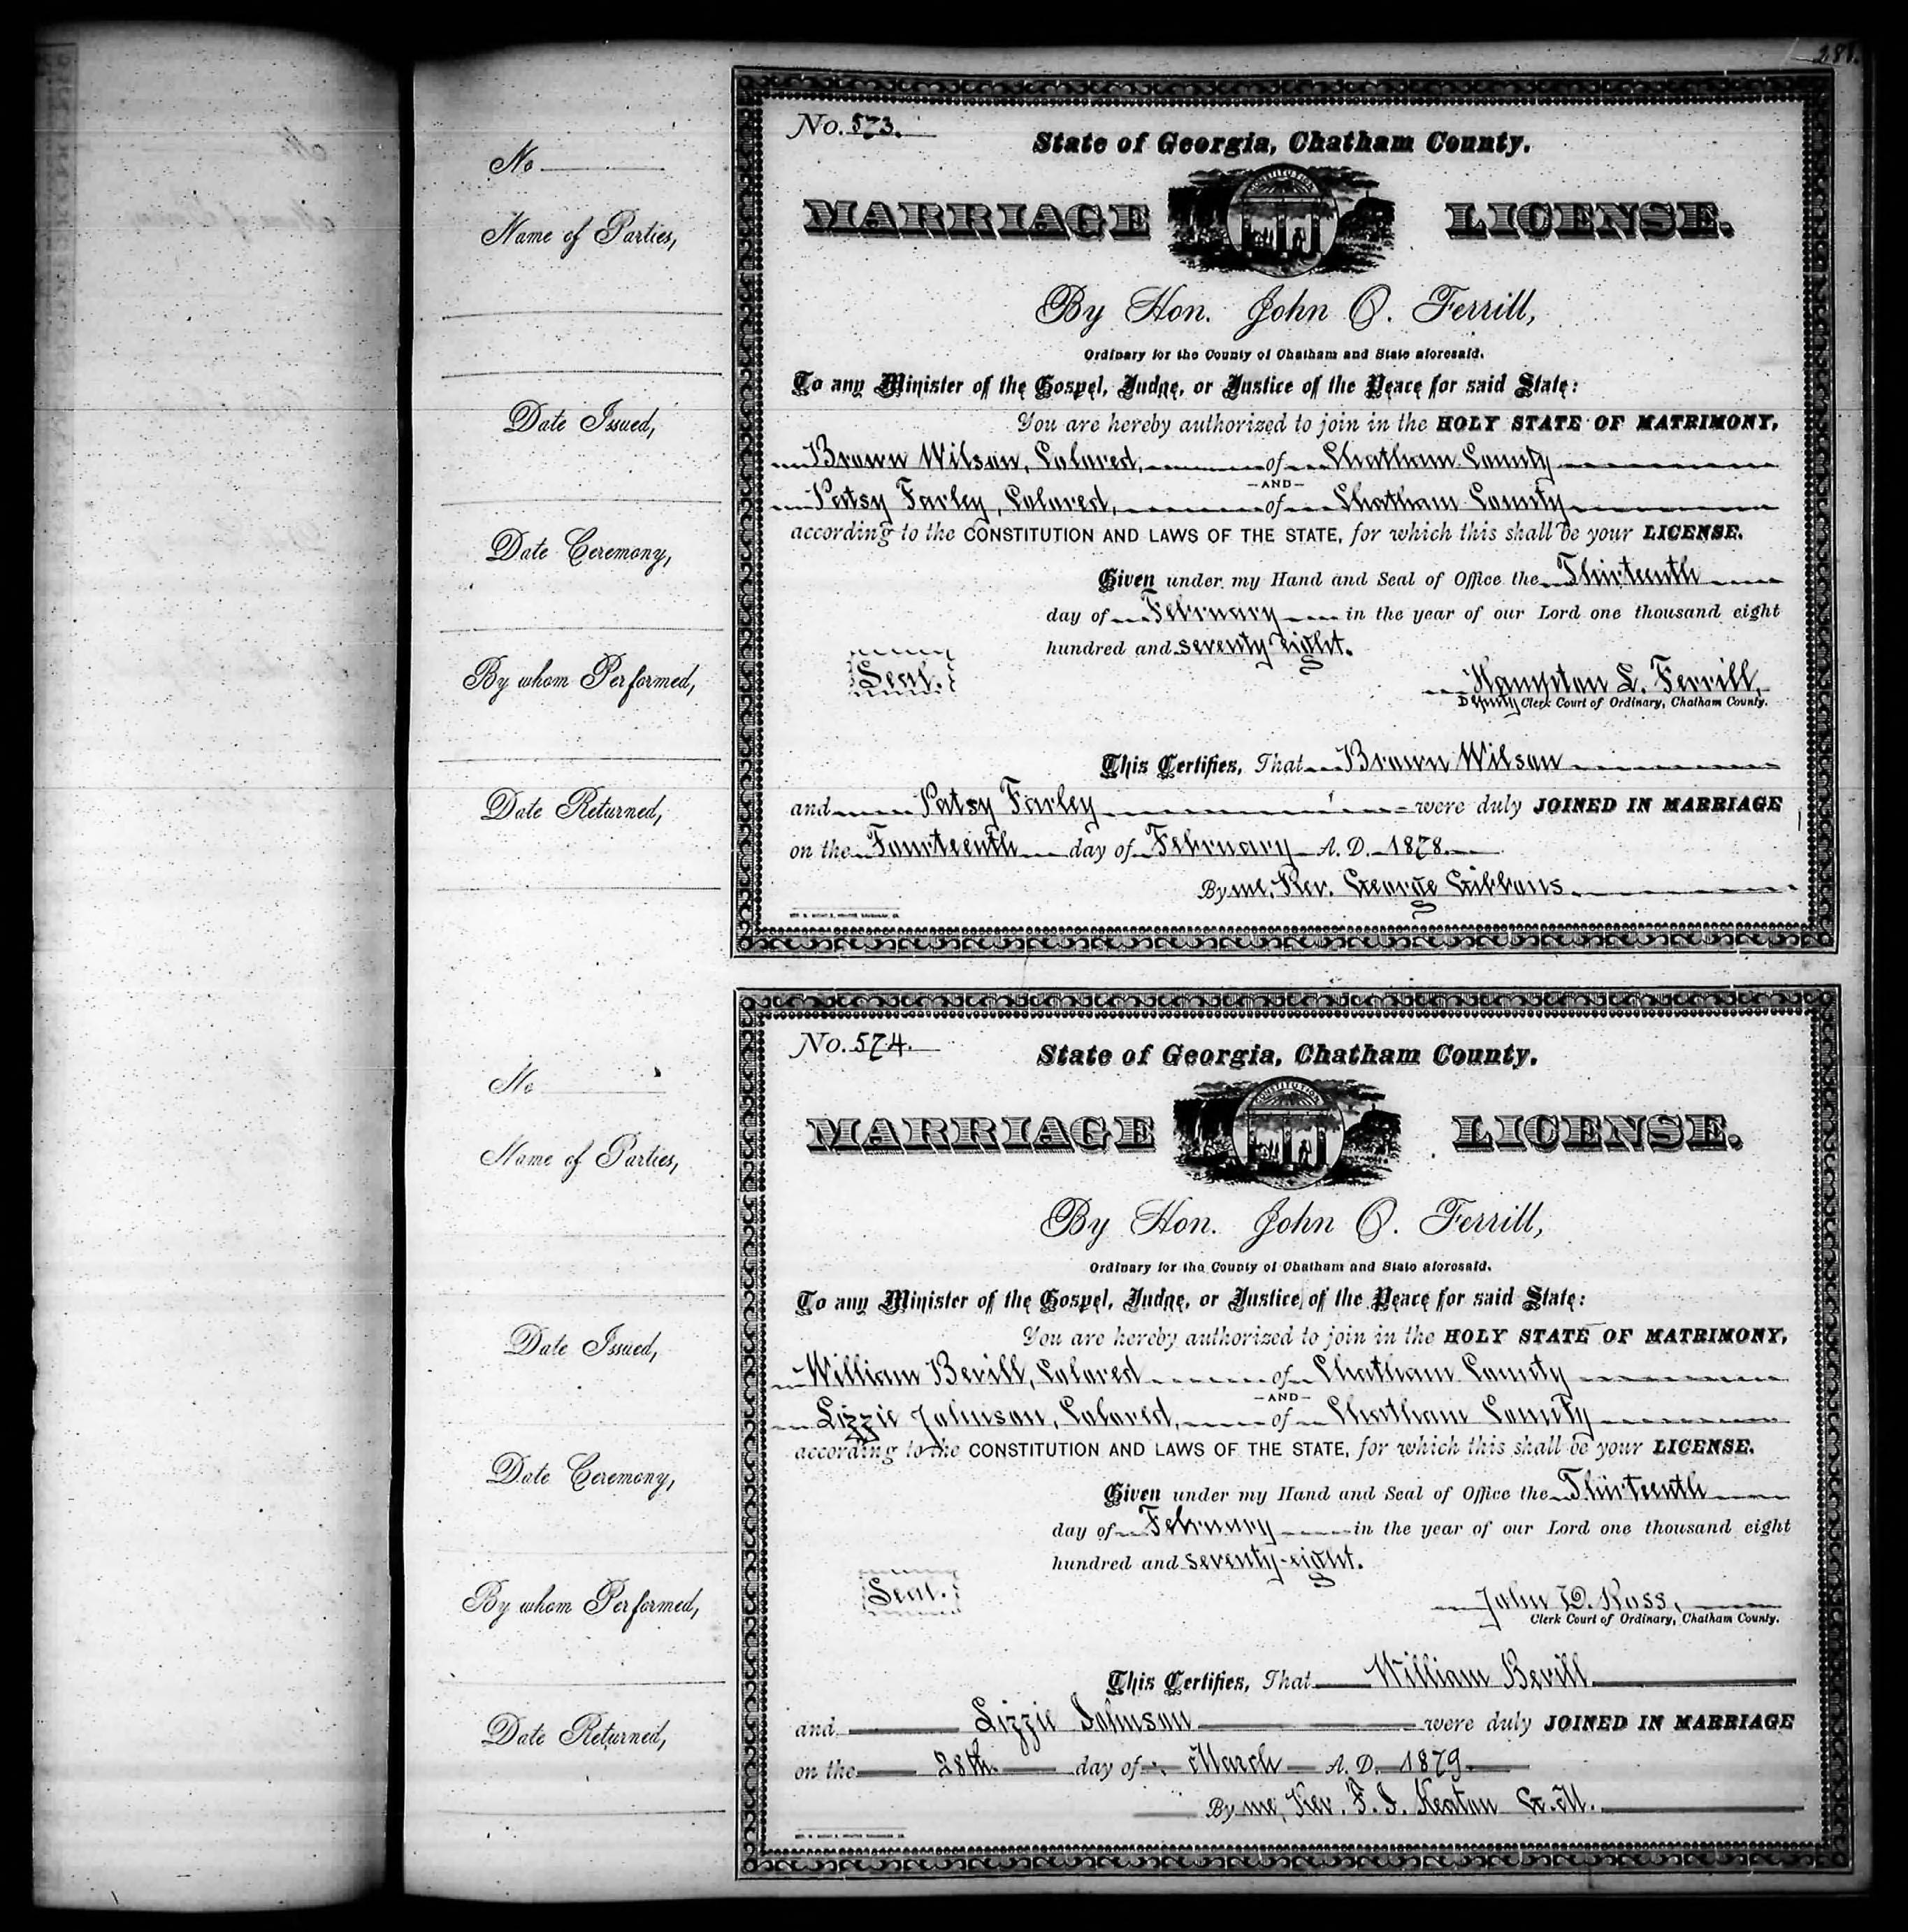 No
Name of Parties,
Date Issued,
Date Ceremony,
By whom Performed,
Date Returned,
No. 573.
State of Georgia, Chatham County.
MARRIAGE LICENSE.
CONSTITUTION
By Hon. John O. Ferrill,
Ordinary for the County of Chatham and State aforesaid.
To any Minister of the Gospel, Judge, or Justice of the Peace for said State:
You are hereby authorized to join in the HOLY STATE OF MATRIMONY,
Brown Wilson, Colored, of Chatham County
—AND—
Patsy Farley, Colored, of Chatham County
according to the CONSTITUTION AND LAWS OF THE STATE, for which this shall be your LICENSE.
Given under my Hand and Seal of Office the Thirteenth
day of February in the year of our Lord one thousand eight
hundred and seventy eight.
Seal.
Hampton L. Ferrill,
Deputy Clerk Court of Ordinary, Chatham County.
This Certifies, That Brown Wilson
and Patsy Farley were duly JOINED IN MARRIAGE
on the Fourteenth day of February A. D. 1878.
By me, Rev. George Gibbons
No
Name of Parties,
Date Issued,
Date Ceremony,
By whom Performed,
Date Returned,
No. 574.
State of Georgia, Chatham County.
MARRIAGE LICENSE.
CONSTITUTION
By Hon. John O. Ferrill,
Ordinary for the County of Chatham and State aforesaid.
To any Minister of the Gospel, Judge, or Justice of the Peace for said State:
You are hereby authorized to join in the HOLY STATE OF MATRIMONY,
William Bevill, Colored of Chatham County
—AND—
Lizzie Johnson, Colored, of Chatham County
according to the CONSTITUTION AND LAWS OF THE STATE, for which this shall be your LICENSE.
Given under my Hand and Seal of Office the Thirteenth
day of February in the year of our Lord one thousand eight
hundred and seventy-eight.
Seal.
John D. Ross,
Clerk Court of Ordinary, Chatham County.
This Certifies, That William Bevill
and Lizzie Johnson were duly JOINED IN MARRIAGE
on the 28th day of March A. D. 1879.
By me, Rev. F. J. Keaton G. M.